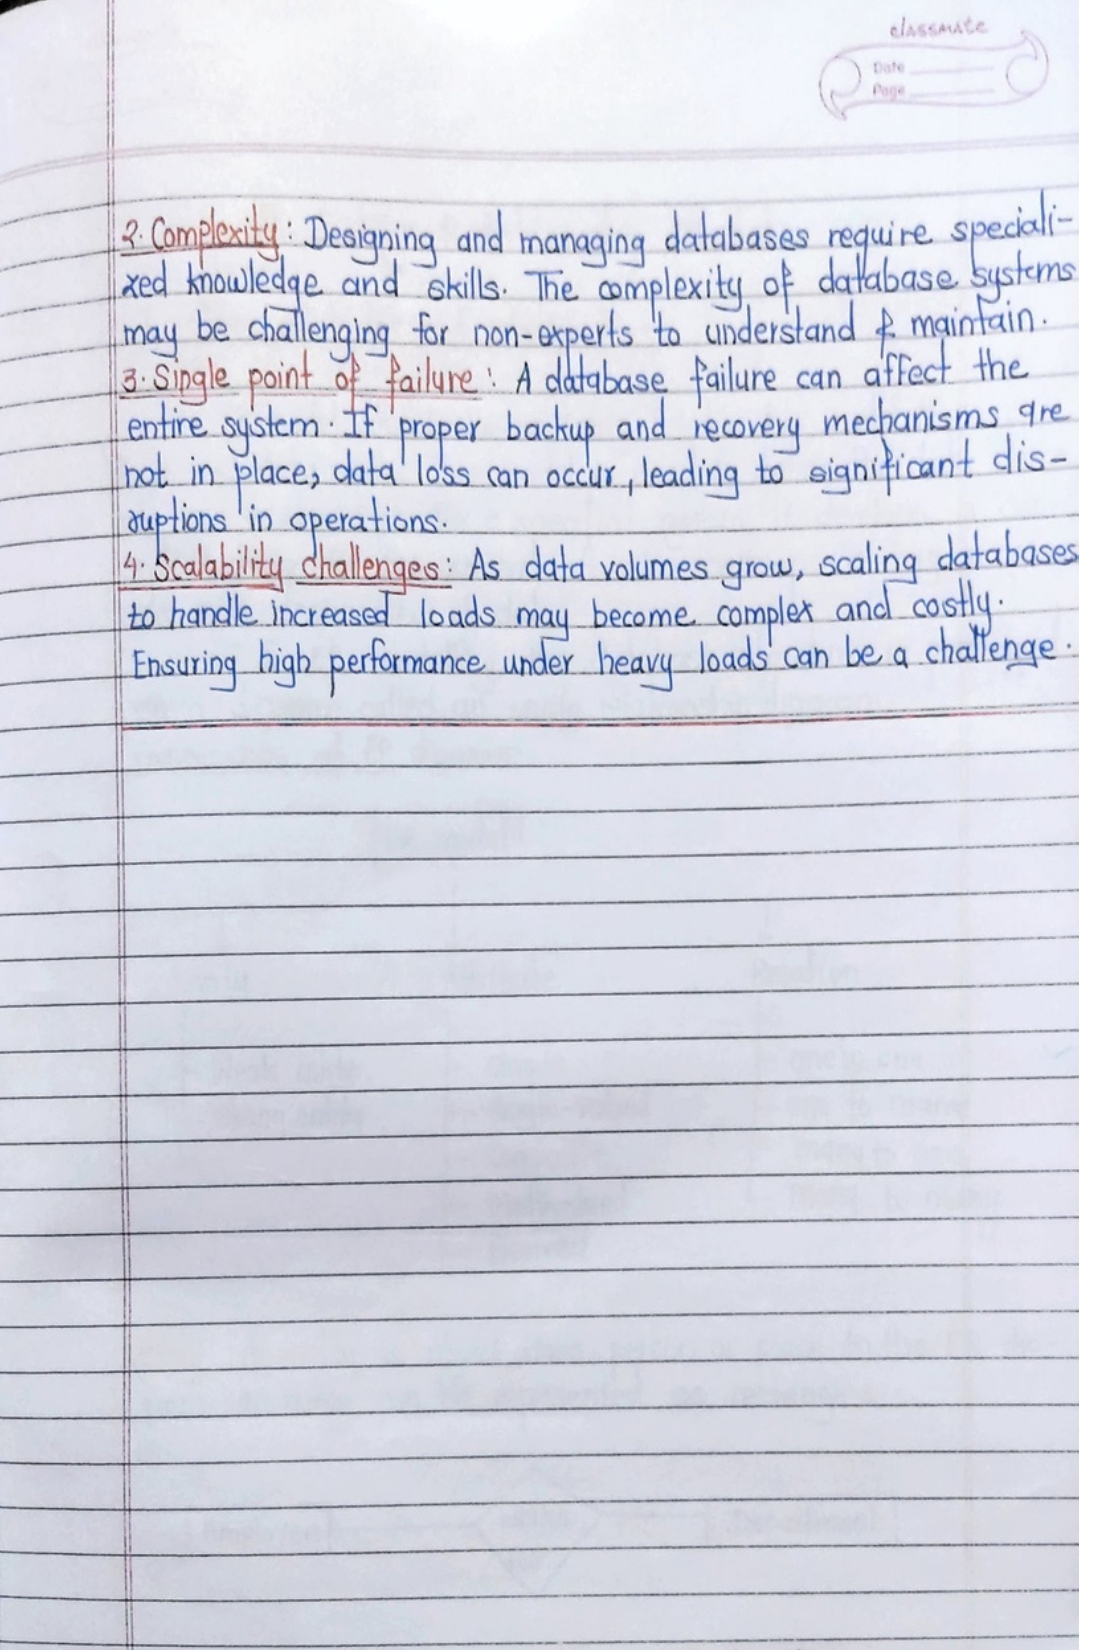 classmate
Date
Page
2. Complexity: Designing and managing databases require speciali-
zed knowledge and skills. The complexity of database systems
may be challenging for non-experts to understand & maintain.
3. Single point of failure: A database failure can affect the
entire system. If proper backup and recovery mechanisms are
not in place, data loss can occur, leading to significant dis-
ruptions in operations.
4. Scalability challenges: As data volumes grow, scaling databases
to handle increased loads may become complex and costly.
Ensuring high performance under heavy loads can be a challenge.